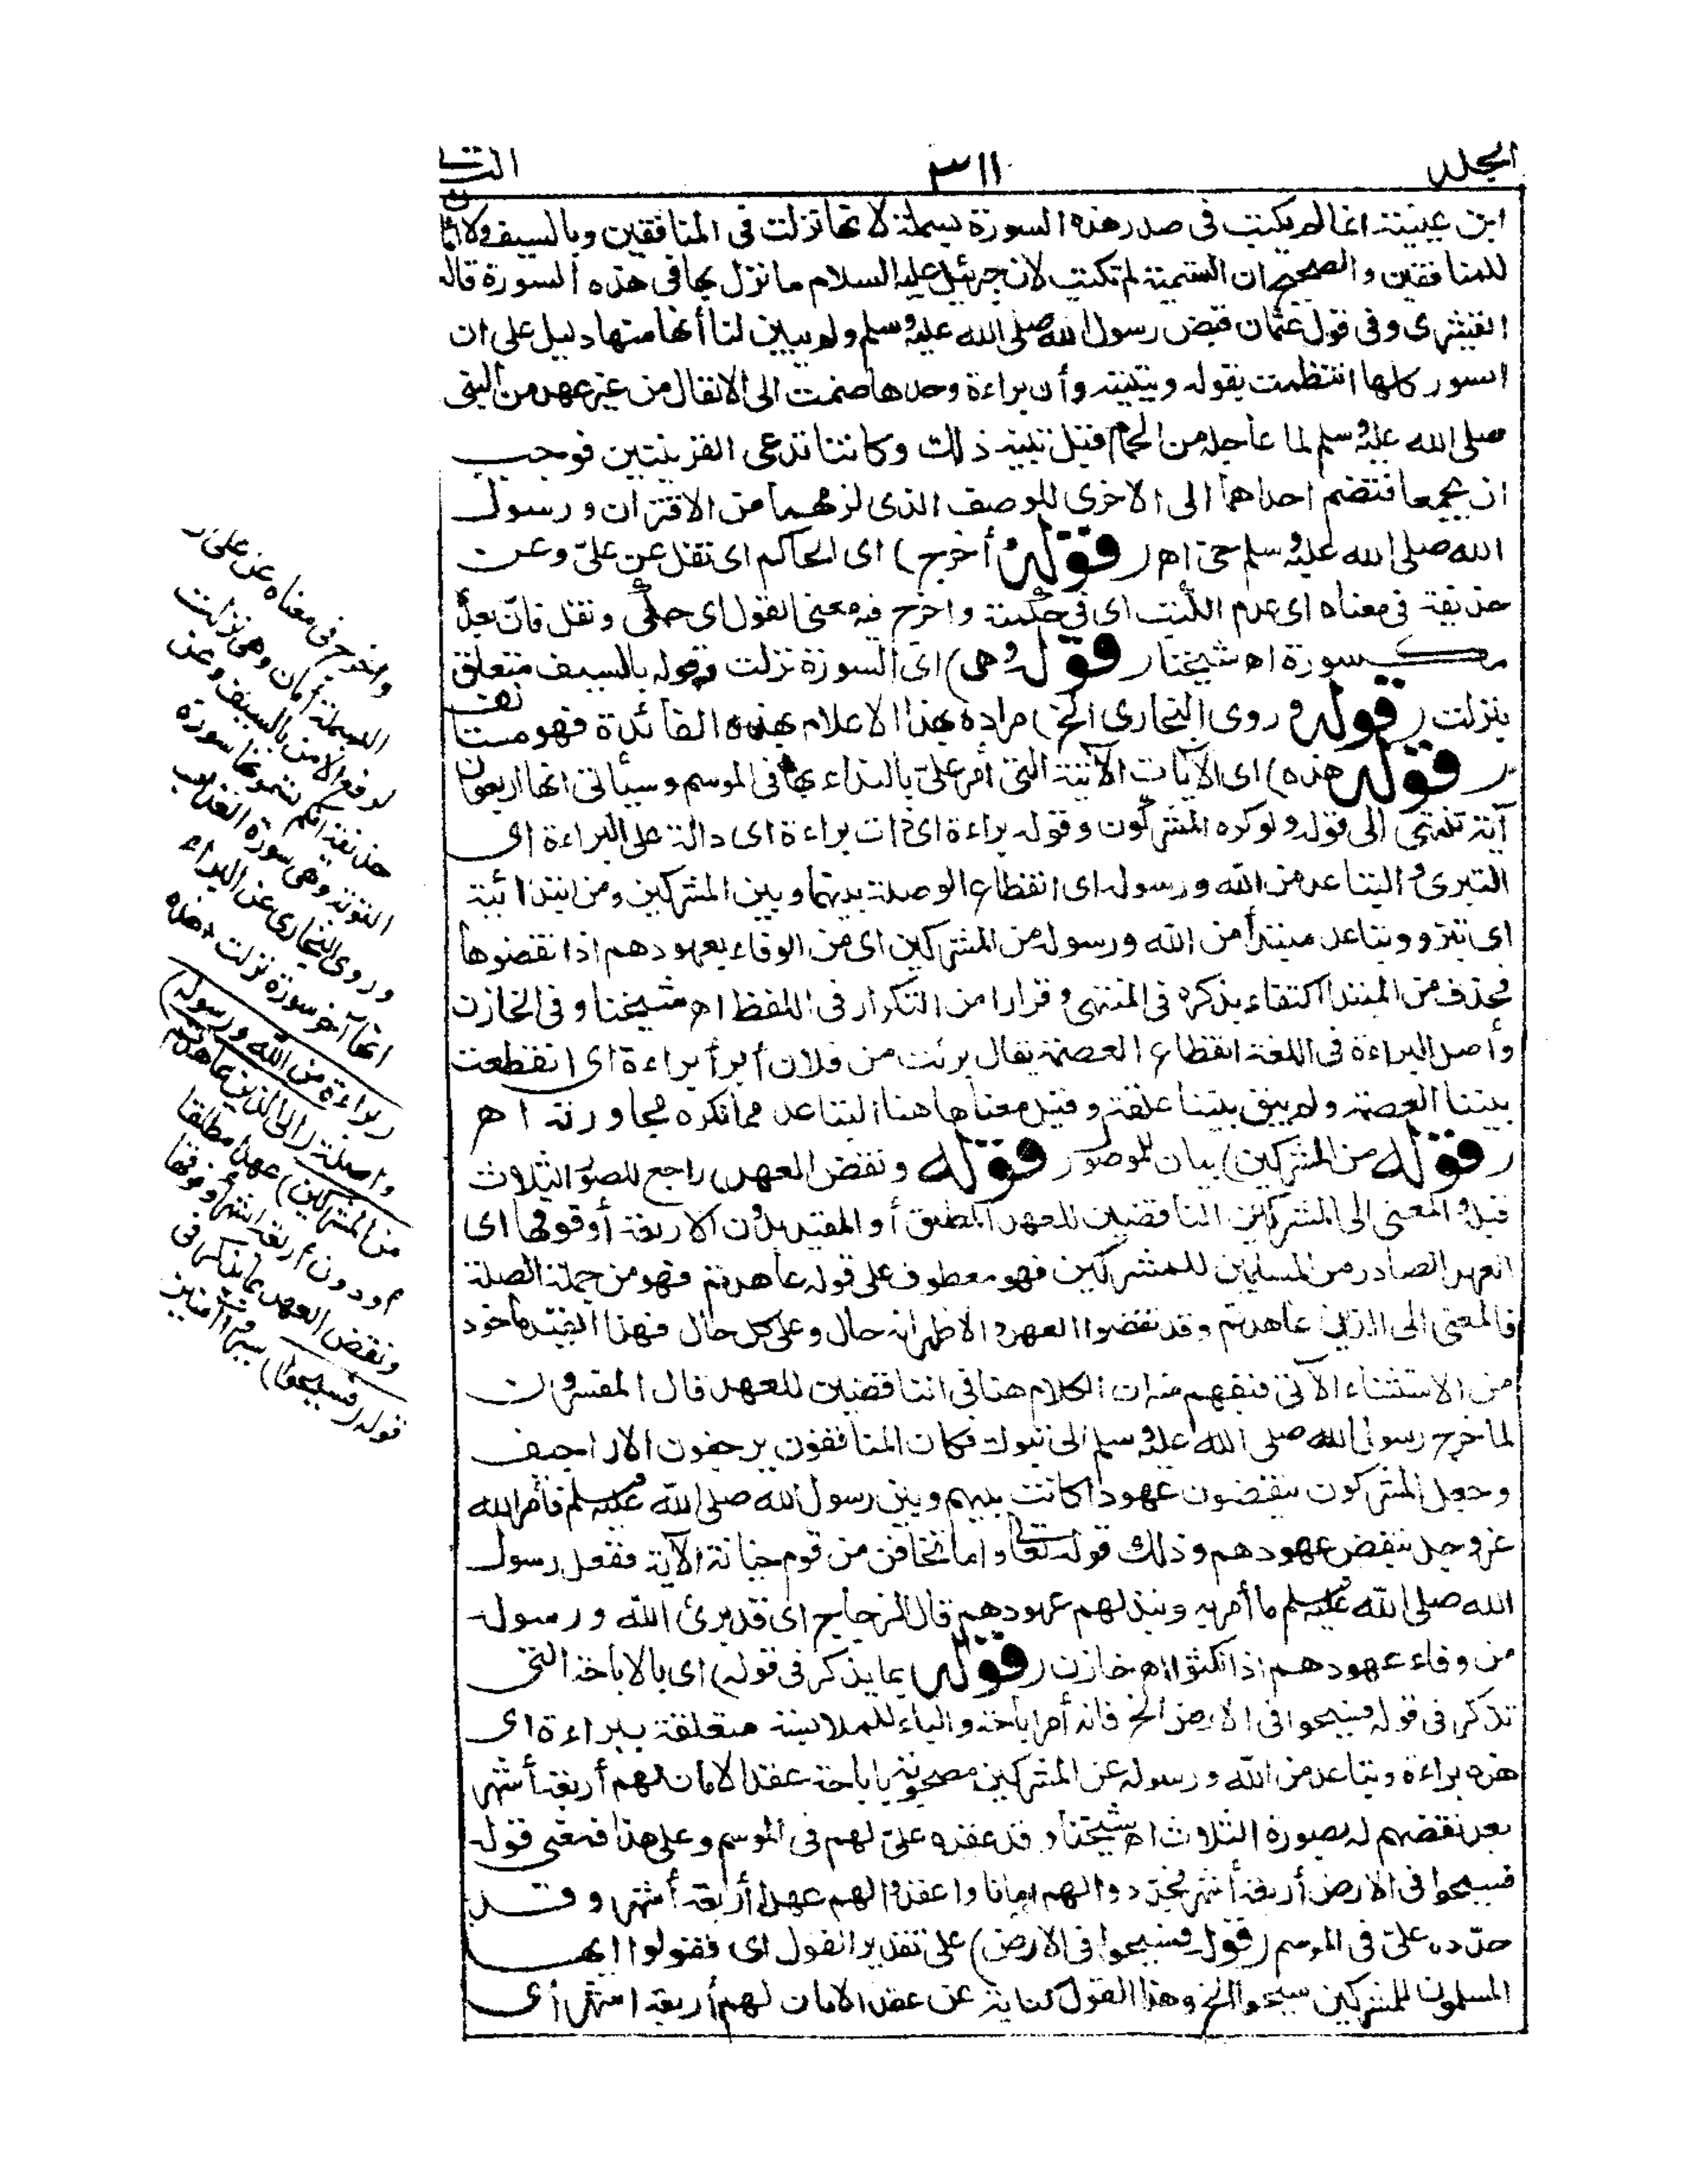 المجلد
٣١١
الثانى
ابن عيينة انما لم يكتب فى صدر هذه السورة بسملة لانها نزلت فى المنافقين وبالسيف ولا امان
للمنافقين والصحيح ان التسمية لم تكتب لان جبرئيل عليه السلام ما نزل بها فى هذه السورة قاله
القشيرى وفى قول عثمان قبض رسول الله صلى الله عليه وسلم ولم يبين لنا أنها منها دليل على ان
السور كلها انتظمت بقوله وتبيينه وأن براءة وحدها ضمت الى الانفال من غير عهد من النبى
صلى الله عليه وسلم لما عاجله من الحمام قبل تبيينه ذلك وكانتا تدعى القرينتين فوجب
ان يجمعا فتضم احداهما الى الاخرى للوصف الذى لزمهما من الاقتران ورسول
الله صلى الله عليه وسلم حى اهـ (قوله وأخرج) اى الحاكم اى نقل عن علىّ وعن
حذيفة فى معناه اى عدم الكتب اى فى حكمته واخرج فيه معنى القول اى حكى ونقل فانّ بعدّ
مكسورة اهـ شيخنا (قوله وهى) اى السورة نزلت وقوله بالسيف متعلق
بنزلت (قوله وروى البخارى الخ) مراده بهذا الاعلام بهذه الفائدة فهو مستانف
(قوله هذه) اى الآيات الآتية التى أمر علىّ بالنداء بها فى الموسم وسيأتى انها اربعون
آية تنتهى الى قوله ولو كره المشركون وقوله براءة اى ذات براءة اى دالة على البراءة اى
التبرى والتباعد من الله ورسوله اى انقطاع الوصلة بينهما وبين المشركين ومن ابتدائية
اى تبرّو وتباعد مبتدأ من الله ورسوله من المشركين اى من الوفاء بعهودهم اذا نقضوها
فحذف من المبتدا اكتفاء بذكره فى المنتهى وفرارا من التكرار فى اللفظ اهـ شيخنا وفى الخازن
وأصل البراءة فى اللغة انقطاع العصمة يقال برئت من فلان أبرأ براءة اى انقطعت
بيننا العصمة ولم يبق بيننا علقة وقيل معناها هنا التباعد مما تكره مجاورته اهـ
(قوله من المشركين) بيان للموصول (قوله ونقض العهد) راجع للصور الثلاث
قبله والمعنى الى المشركين الناقضين للعهد المطلق أو المقيد بدون الاربعة أو فوقها اى
العهد الصادر من المسلمين للمشركين فهو معطوف على قوله عاهدتم فهو من جملة الصلة
فالمعنى الى الذين عاهدتم وقد نقضوا العهد والاظهر انه حال وعلى كل حال فهذا القيد مأخوذ
من الاستثناء الآتى فيفهم منه ان الكلام هنا فى الناقضين للعهد قال المفسرون
لما خرج رسول الله صلى الله عليه وسلم الى تبوك فكان المنافقون يرجفون الاراجيف
وجعل المشركون ينقضون عهودا كانت بينهم وبين رسول الله صلى الله عليه وسلم فأمر الله
عزوجل بنقض عهودهم وذلك قوله تعالى واما تخافن من قوم خيانة الآية ففعل رسول
الله صلى الله عليه وسلم ما أمر به ونبذ لهم عهودهم قال الزجاج اى قد برئ الله ورسوله
من وفاء عهودهم اذا نكثوا اهـ خازن (قوله بما يذكر فى قوله) اى بالاباحة التى
تذكر فى قوله فسيحوا فى الارض الخ فانه أمر اباحة والباء للملابسة متعلقة ببراءة اى
هذه براءة وتباعد من الله ورسوله عن المشركين مصحوبة باباحة عقد الامان لهم أربعة أشهر
بعد نقضهم له بصورة الثلاث اهـ شيخنا وقد عقده علىّ لهم فى الموسم وعلى هذا فمعنى قوله
فسيحوا فى الارض أربعة أشهر جدّدوا لهم امانا واعقدوا لهم عهدا أربعة أشهر وقد
جدّده علىّ فى الموسم (قوله فسيحوا فى الارض) على تقدير القول اى فقولوا ايها
المسلمون للمشركين سيحوا الخ وهذا القول كناية عن عقد الامان لهم أربعة اشهر أى
وأخرج فى معناه عن علىّ ان
البسملة أمان وهى نزلت
لرفع الامن بالسيف وعن
حذيفة انكم تسمونها سورة
التوبة وهى سورة العذاب
وروى البخارى عن البراء
انها آخر سورة نزلت هذه
(براءة من الله ورسوله)
واصلة (الى الذين عاهدتم
من المشركين) عهدا مطلقا
أو دون أربعة اشهر أو فوقها
ونقض العهد بما يذكر فى
قوله (فسيحوا) سيروا آمنين